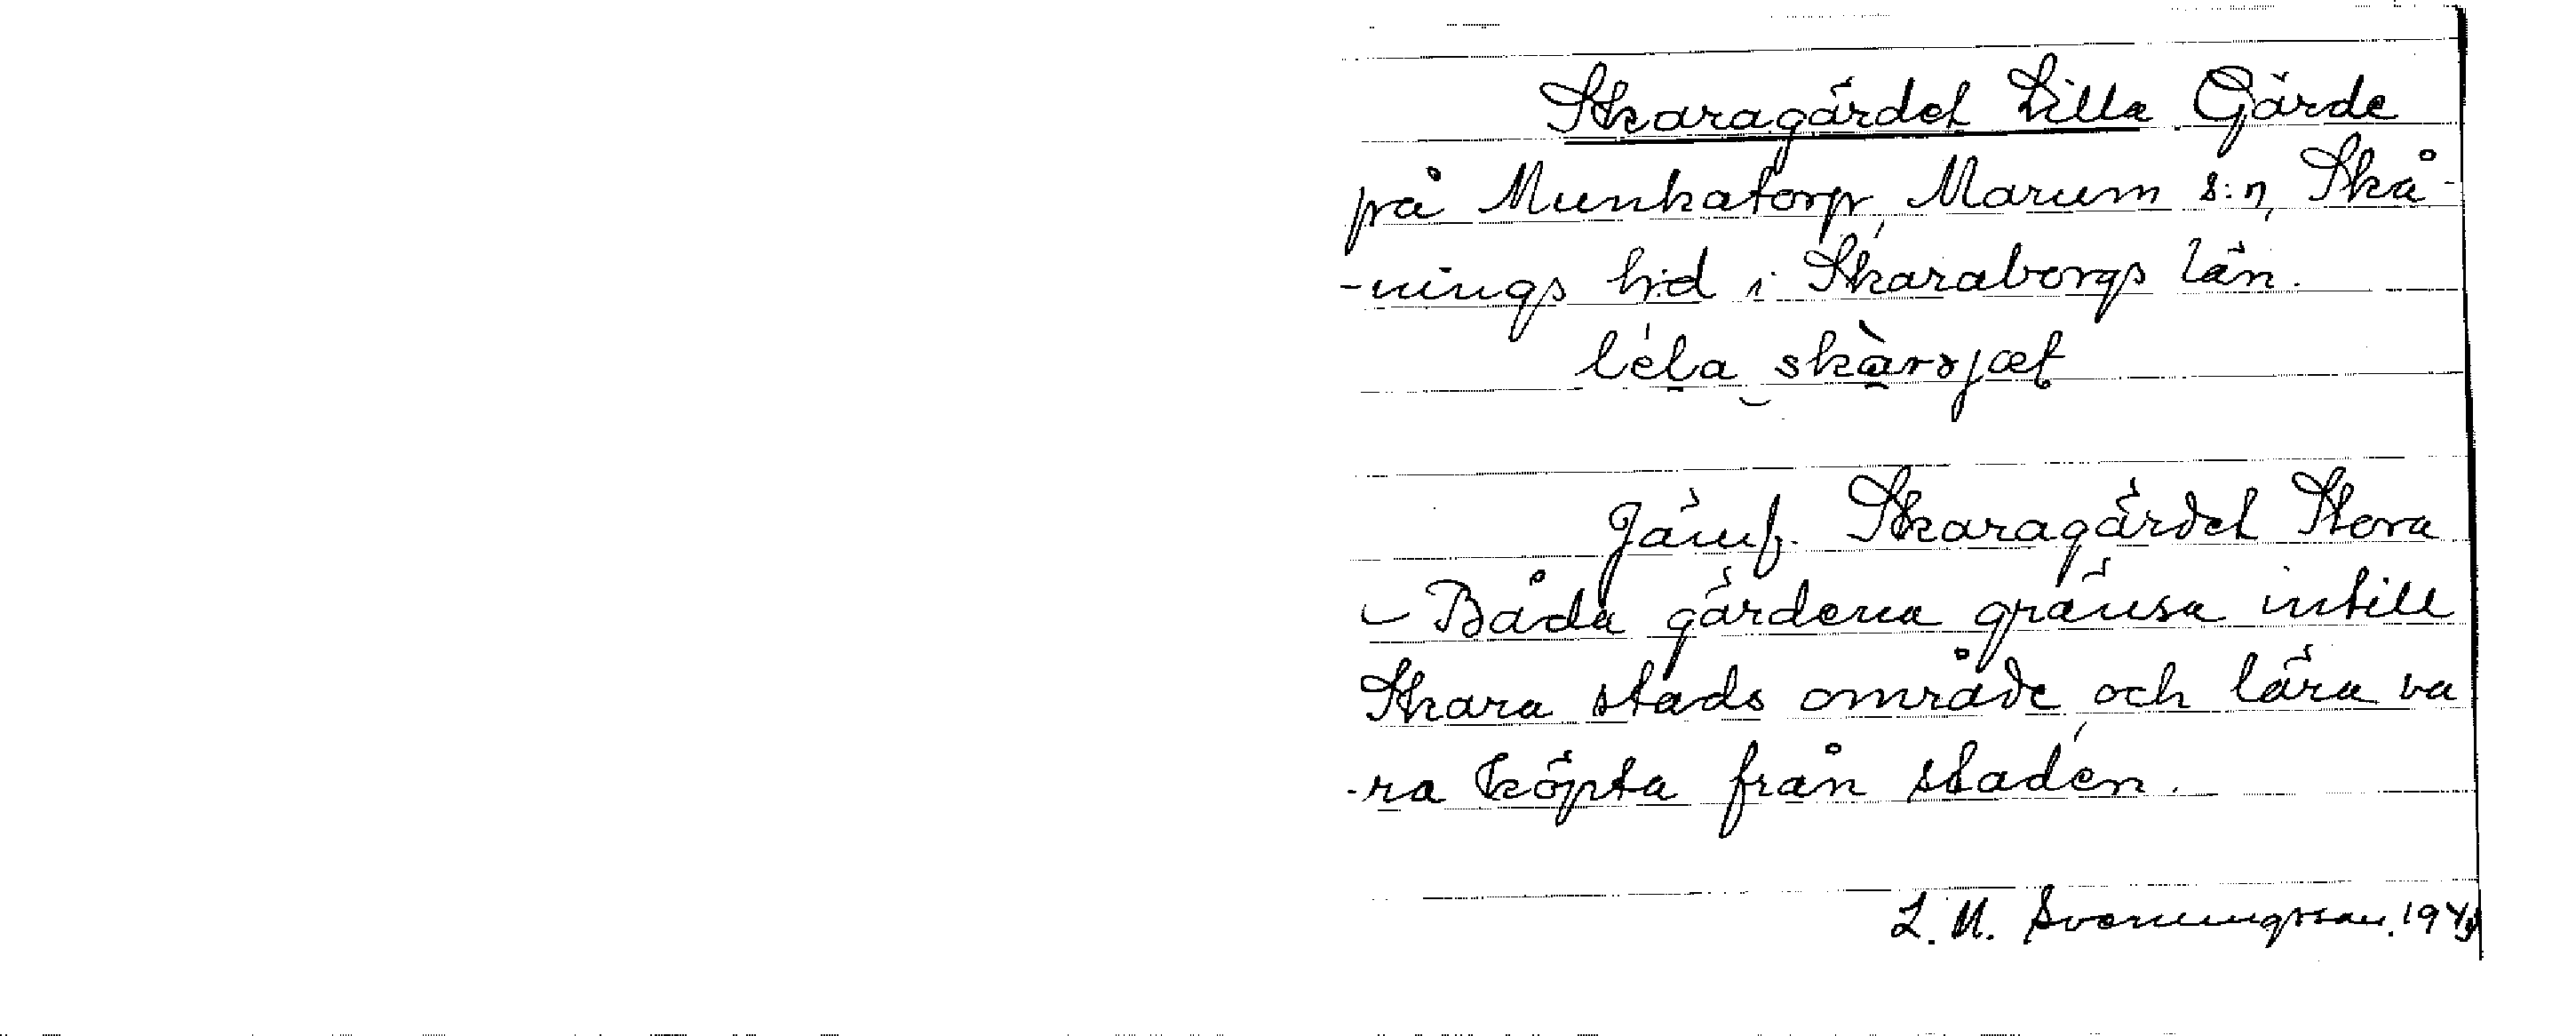 Skaragärdet Lilla Gärde
på Munkatorp, Marum s:n, Skå-
-nings h:d i Skaraborgs län.
Jämf. Skaragärdet Stora
– Båda gärdena gränsa intill
Skara stads område, och lära va
-ra köpta från staden.
L. M. Svenungsson.